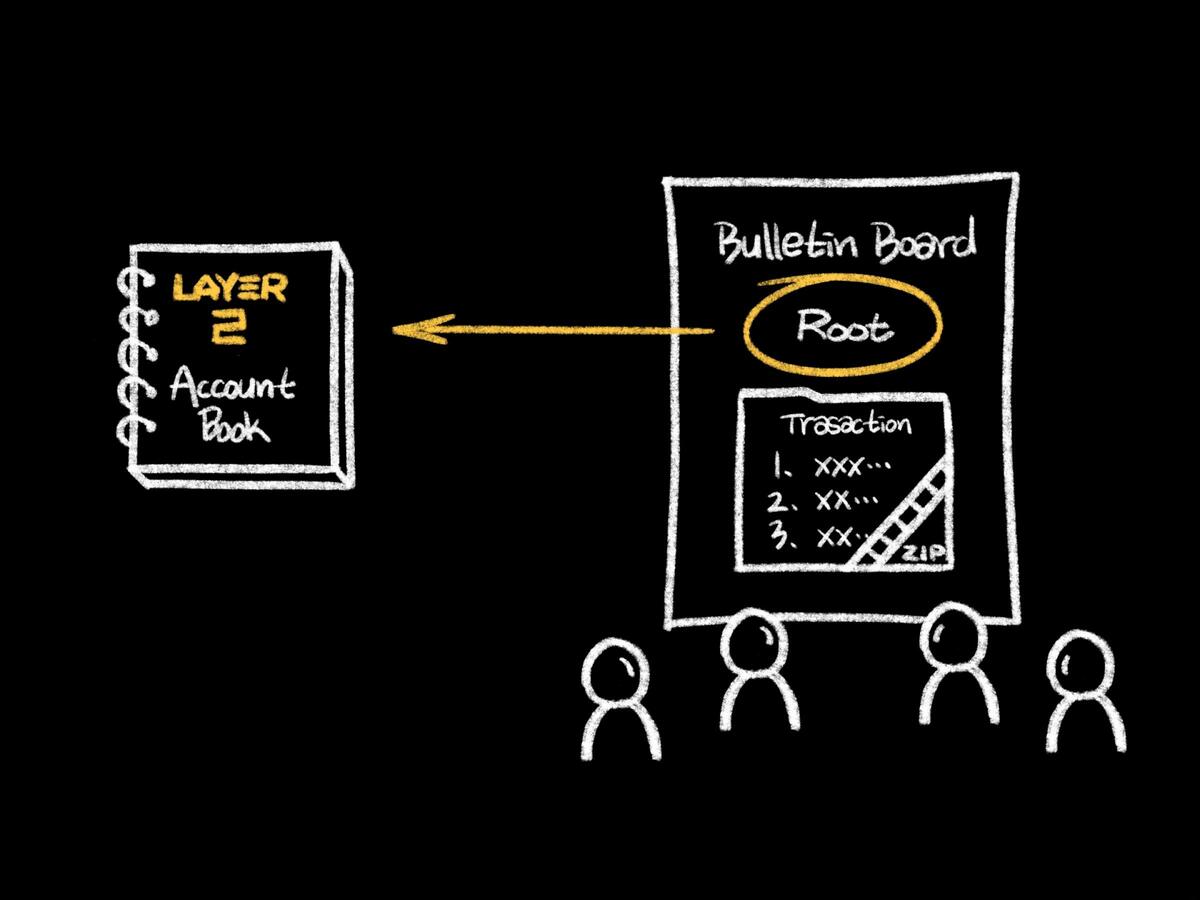 LAYER
2
Account
Book
Bulletin Board
Root
Trasaction
1. xxx...
2. xx...
3. xx..
ZIP